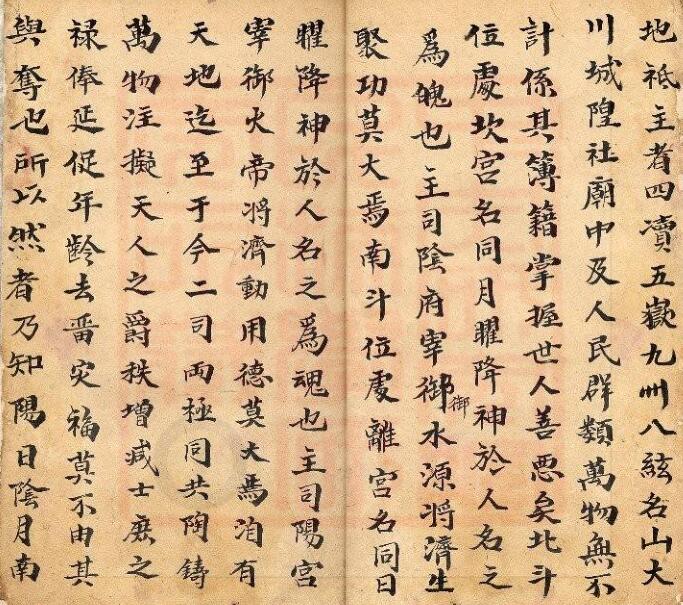 地祇主者四瀆五嶽九州八紘名山大
川城隍社廟中及人民群類萬物無不
計係其簿籍掌握世人善悪矣北斗
位處坎宮名同月曜降神於人名之
為魄也主司陰府宰御御水源將濟生
聚功莫大焉南斗位處離宮名同日
曜降神於人名之為魂也主司陽宮
宰御火帝將濟動用德莫大焉洎有
天地迄至于今二司兩極同共陶鑄
萬物注擬天人之爵秩增減士庶之
禄俸延促年齡去畱灾福莫不由其
與奪也所以然者乃知陽日陰月南